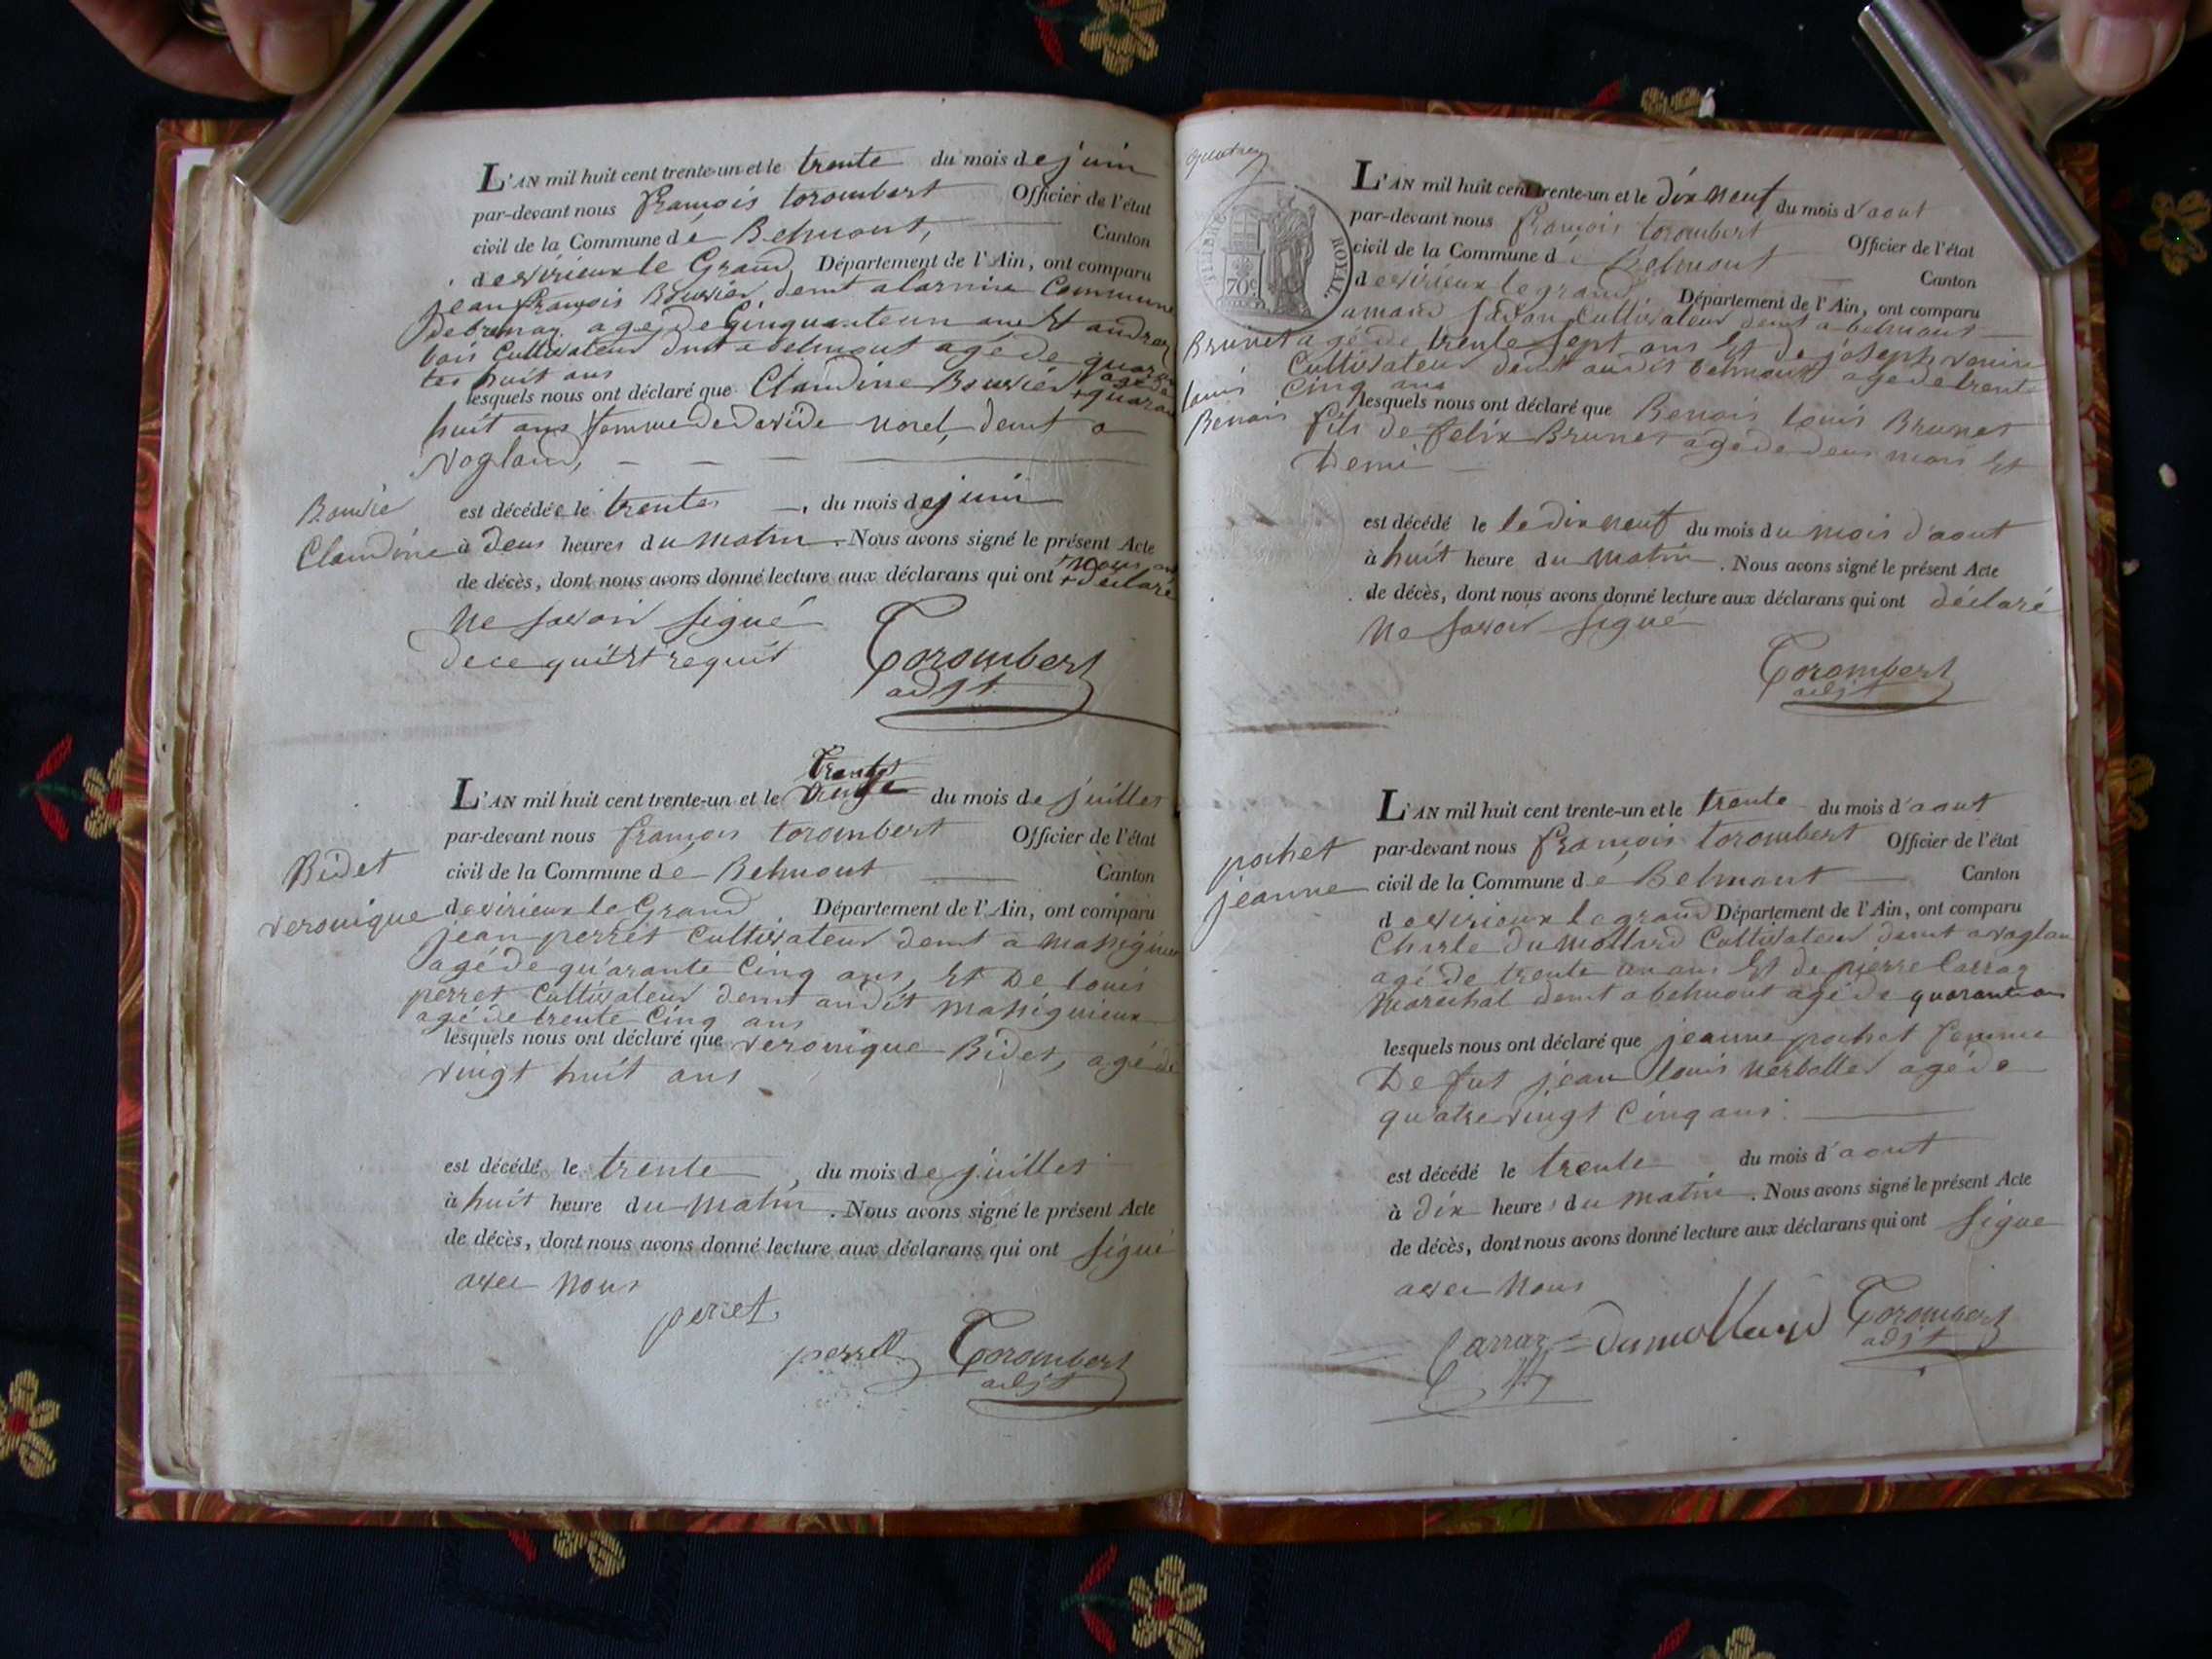 L'AN mil huit cent trente-un et le trente du mois de juin
par-devant nous françois torombert Officier de l'état
civil de la Commune de Belmont, Canton
devirieux le Grand Département de l'Ain, ont comparu
jean françois Bouvier, demt a Commune
age de Cinquante un ans Et
bois Cultivateur dmt a belmont age de quaran
tes huit ans
lesquels nous ont déclaré que Claudine Bouvier agé de
+ quarante
huit ans femme de davide morel, demt a
Voglans,
Bouvié
Claudine
est décédée le trentes, du mois de juin
à deus heures du matin. Nous avons signé le présent Acte
de décès, dont nous avons donné lecture aux déclarans qui ont
+ déclaré
ne savoir signé
de ce qui Et requit
Torombert
adjt
L'AN mil huit cent trente-un et le trente du mois de juilles
par-devant nous françois torombert Officier de l'état
civil de la Commune de Belmont Canton
Bidet
veronique
devirieux le Grand Département de l'Ain, ont comparu
jean perret Cultivateur demt a massignieu
agé de qu'arante Cinq ans, Et De louis
perret Cultivateur demt audit massignieux
agé de trente Cinq ans
lesquels nous ont déclaré que veronique Bidet, agé de
vingt huit ans
est décédé le trente, du mois de juilles
à huit heure du matin. Nous avons signé le présent Acte
de décès, dont nous avons donné lecture aux déclarans qui ont signé
avec nous
perret
perret Torombert
adjt
TIMBRE ROYAL.
70c
L'AN mil huit cent trente-un et le dix neuf du mois d'aout
par-devant nous françois torombert Officier de l'état
civil de la Commune de Belmont Canton
devirieux le grand Département de l'Ain, ont comparu
Cultivateur demt a belmont
Brunet
louis
Benois
agé de trente sept ans Et de joseph
Cultivateur demt audit belmont age de trente
Cinq ans
lesquels nous ont déclaré que Benois louis Brunet
fils de felix Brunet age de deux mois Et
Demi
est décédé le le dix neuf du mois du mois d'aout
à huit heure du matin. Nous avons signé le présent Acte
de décès, dont nous avons donné lecture aux déclarans qui ont déclaré
ne savoir signé
Torombert
adjt
L'AN mil huit cent trente-un et le trente du mois d'aout
pochet
jeanne
par-devant nous françois torombert Officier de l'état
civil de la Commune de Belmont Canton
devirieux le grand Département de l'Ain, ont comparu
Charle dumollard Cultivateur demt a voglan
agé de trente un ans Et de pierre Carraz
marechal demt a belmont agé de quarante ans
lesquels nous ont déclaré que jeanne pochet femme
De fut jean louis agé de
quatre vingt Cinq ans.
est décédé le trente du mois d'aout
à dix heure du matin. Nous avons signé le présent Acte
de décès, dont nous avons donné lecture aux déclarans qui ont signe
avec nous
Carraz Dumollard Torombert
adjt